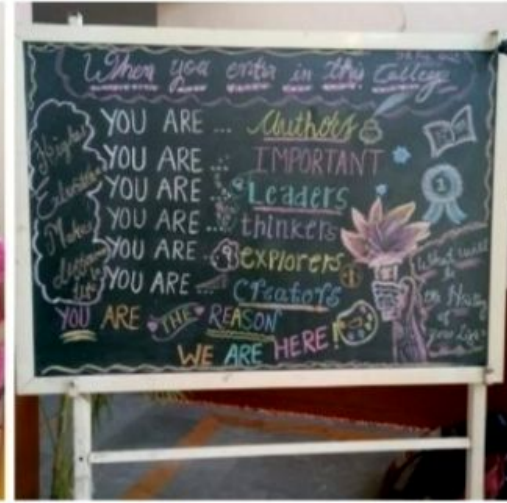 When you enter in this College
YOU ARE ... Authors
YOU ARE ... IMPORTANT
YOU ARE ... Leaders
YOU ARE ... thinkers
YOU ARE ... explorers
YOU ARE ... Creators
YOU ARE THE REASON
WE ARE HERE!
Higher
Makes
1
What will
be
of
your Life